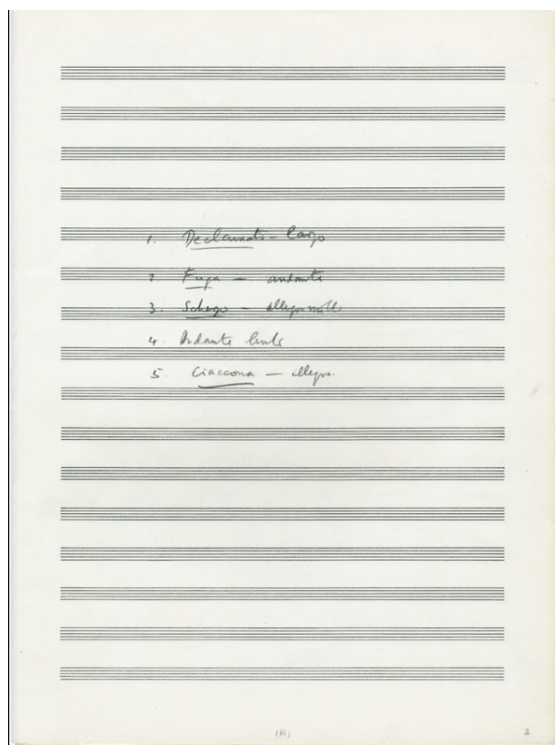 1. Declamato - Largo
2 Fuga - andante
3. Scherzo - allegro molto
4. Andante lento
5. Ciaccona - allegro.
(iii) 2